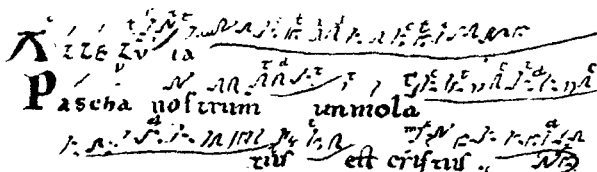 ALLELVIA
Pascha nostrum immola
tus est cristus.